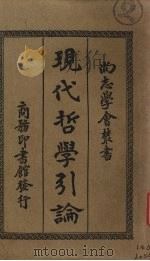 尚志學會叢書
現代哲學引論
商務印書館發行
www.mtoou.info